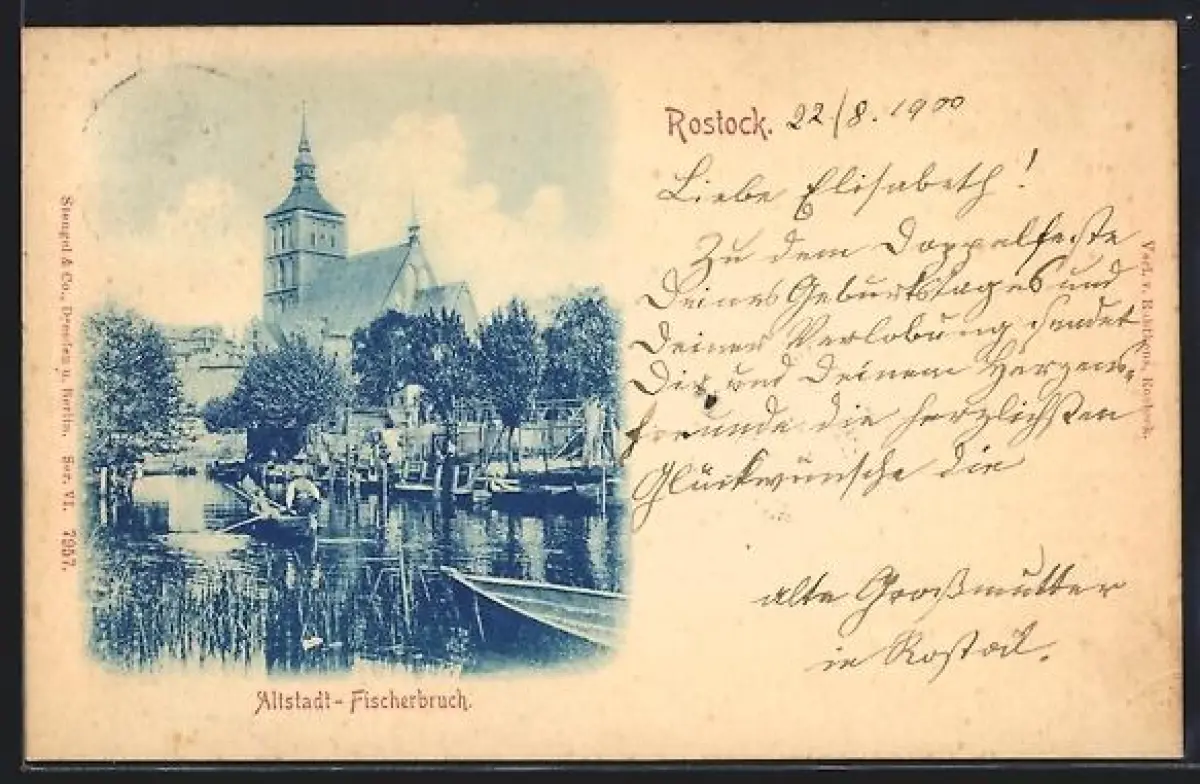 Rostock. 22/8. 1900
Liebe Elisabeth!
Zu dem Doppelfeste
Deines Geburtstages und
Deiner Verlobung sendet
Dir und Deinem Herzens-
freunde die herzlichsten
Glückwünsche die
alte Großmutter
in Rostock.
Altstadt-Fischerbruch.
Stengel & Co., Dresden u. Berlin. Ser. VI. 7957.
Verl. v. Rostock.